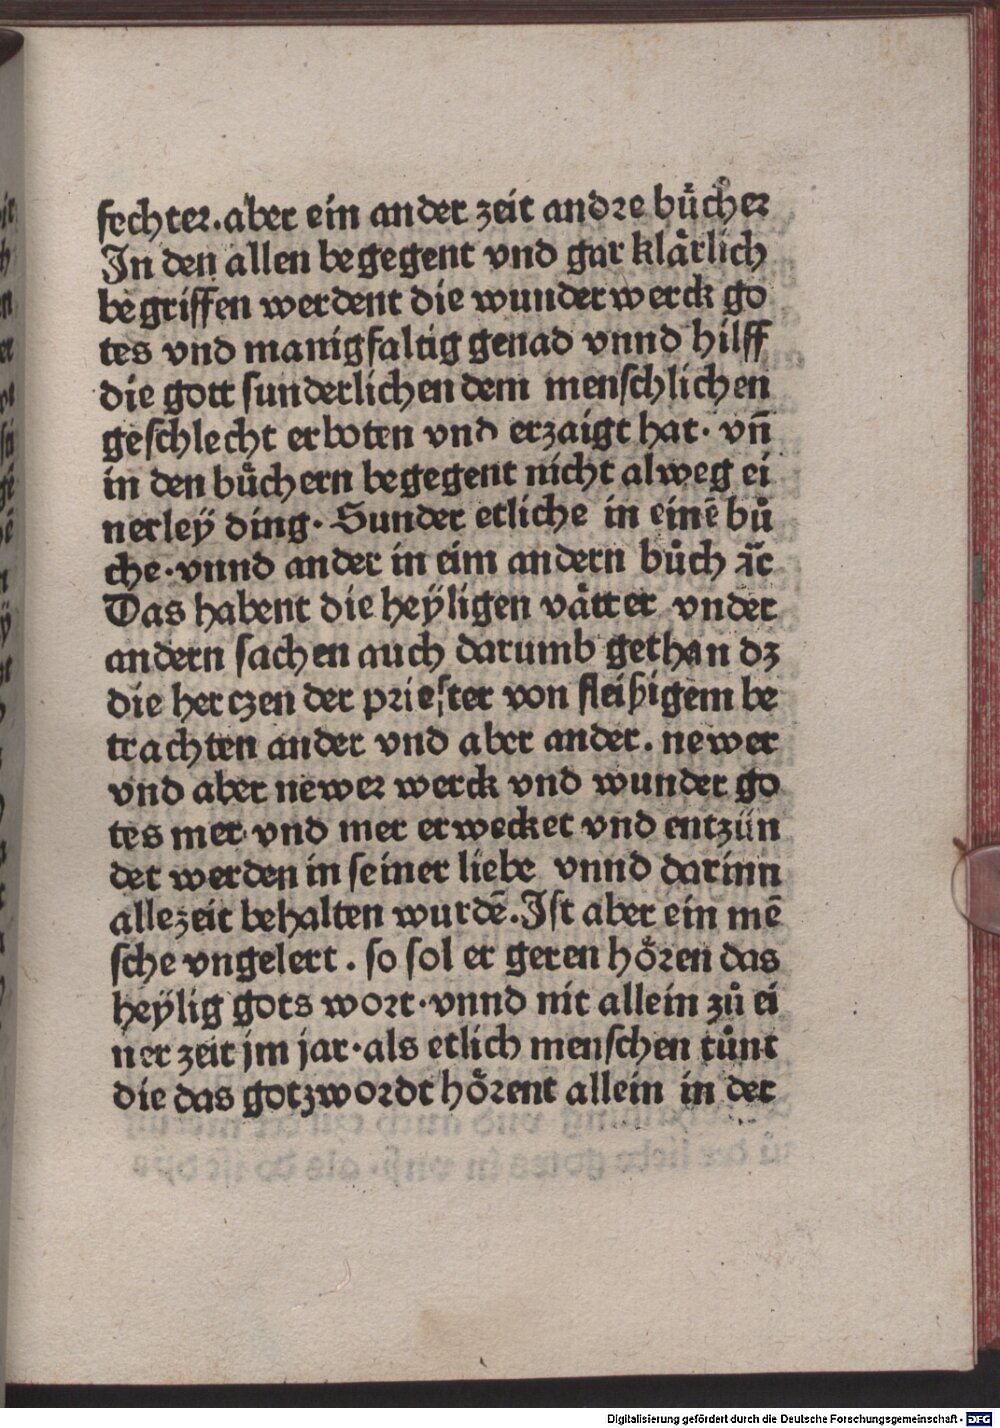 fechter. aber ein ander zeit andre buͤcher
In den allen begegent vnd gar klaͤrlich
begriffen werdent die wunderwerck go
tes vnd manigfaltig genad vnnd hilff
die gott sunderlichen dem menschlichen
geschlecht erboten vnd erzaigt hat. vn̄
in den buͤchern begegent nicht alweg ei
nerleÿ ding. Sunder etliche in einē buͦ
che. vnnd ander in eim andern buͦch ꝛc̄
Das habent die heÿligen vaͤtter vnder
andern sachen auch darumb gethan dz
die herczen der priester von fleißigem be
trachten ander vnd aber ander. newer
vnd aber newer werck vnd wunder go
tes mer vnd mer erwecket vnd entzün
det werden in seiner liebe vnnd darinn
allezeit behalten wurdē. Ist aber ein mē
sche vngelert. so sol er geren hoͤren das
heÿlig gots wort. vnnd nit allein zuͦ ei
ner zeit jm jar. als etlich menschen tuͦnt
die das gotzwordt hoͤrent allein in der
Digitalisierung gefördert durch die Deutsche Forschungsgemeinschaft - DFG